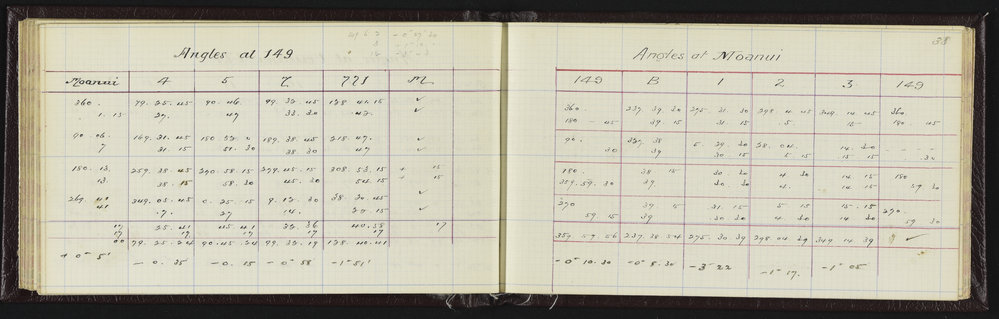 Angles at 149
Moanui 4 5 Z 771 M
360 . 79. 25. 45 90. 46. 99. 32. 45 128. 41. 15 ✓
1. 15 27. 47 33. 30 42. ✓
90. 06. 169. 31. 45 180. 52. 0 189. 38. 45 218. 47. ✓
7 31. 15 51. 30 38. 30 47 ✓
180. 13. 259. 38. 45 270. 58. 15 279. 45. 15 308. 53. 15 + 15
13. 38. 15 58. 30 45. 30 54. 15 + 15
269. 41 349. 05. 45 0. 25. 15 9. 12. 30 38. 20. 45 ✓
41 .7. 27 14. 22. 15 ✓
17 25. 41 45. 41 32. 36 40. 58 17
17 17 17 17 17
00 79. 25. 24 90. 45. 24 99. 32. 19 128. 40. 41
+ 0° 5' - 0. 35 - 0. 15 - 0° 58' - 1° 51'
38
Angles at Moanui
149 B 1 2 3 149
360. 237. 39. 30 275. 31. 30 298. 4. 45 349. 14. 45 360.
180 - 45 39. 15 31. 15 5. 15 180. 45
90. 327. 38 5. 29. 30 28. 04. 14. 30 - - -
30 39 30. 15 5. 15 15. 15 . 30
180. 38 15 30. 30 4. 30 14. 15 180
359. 59. 30 39. 30. 30 4. 14. 15 59 30
270 39 15 31. 15 5. 15 15. 15 270.
59. 15 39 30. 30 4. 30 14. 30 59 30
359. 59. 56 237. 38. 54 275. 30. 39 298. 04. 39 349 14. 39 ✓
- 0° 10. 30 - 0° 8. 30 - 3° 22 - 1° 17. - 1° 05